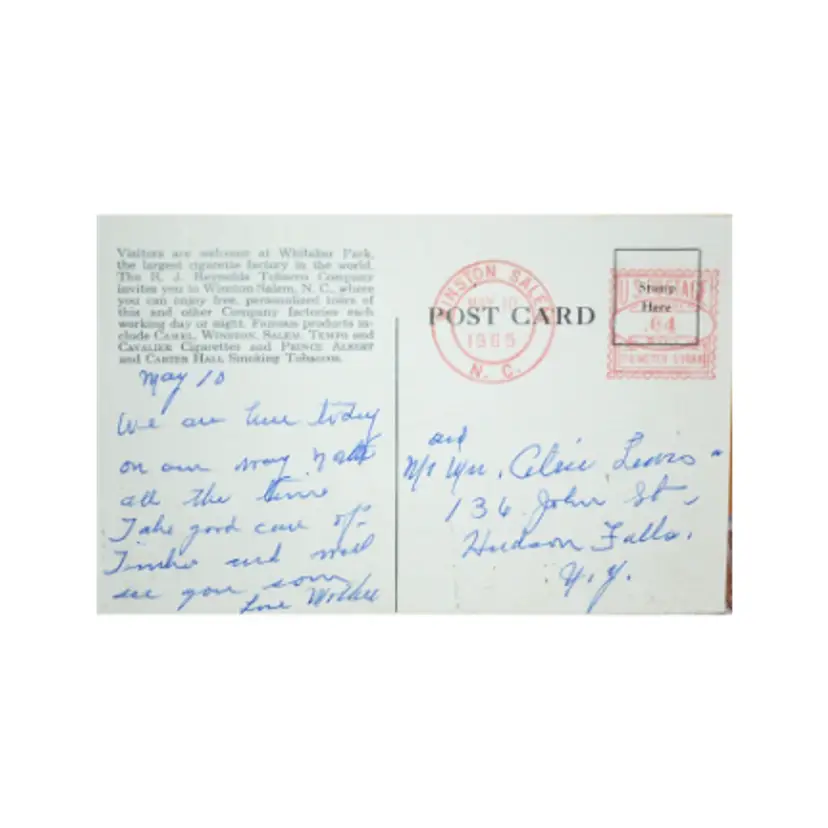 Visitors are welcome at Whitaker Park,
the largest cigarette factory in the world.
The R. J. Reynolds Tobacco Company
invites you to Winston Salem, N. C., where
you can enjoy free, personalized tours of
this and other Company factories each
working day or night. Famous products in-
clude CAMEL, WINSTON, SALEM, TEMPO and
CAVALIER Cigarettes and PRINCE ALBERT
and CARTER HALL Smoking Tobaccos.
May 10
We are here today
on our way North
all the time
Take good care of
and will
see you soon
Love Mother
POST CARD
WINSTON SALEM
MAY 10
1965
N. C.
Stamp
Here
U.S. POSTAGE
.04
METER
and
Lewis
136 John St.
Hudson Falls,
N. Y.